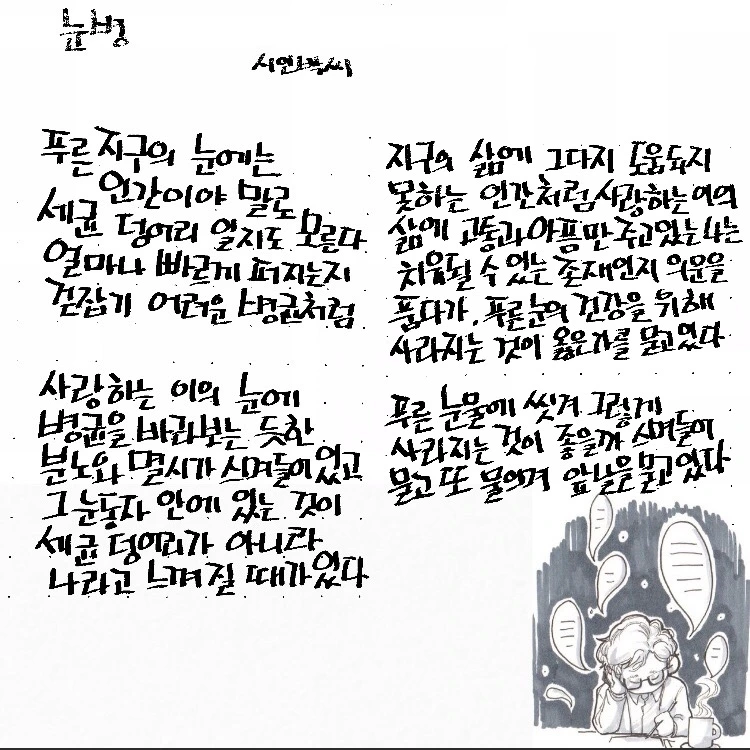 눈병
시인박씨
푸른 지구의 눈에는
인간이야 말로
세균 덩어리 일지도 모른다
얼마나 빠르게 퍼지는지
걷잡기 어려운 병균처럼
사랑하는 이의 눈에
병균을 바라보는 듯한
분노와 멸시가 스며들어있고
그 눈동자 안에 있는 것이
세균 덩어리가 아니라
나라고 느껴질 때가있다
지구의 삶에 그다지 도움되지
못하는 인간처럼 사랑하는 이의
삶에 고통과 아픔만 주고있는 나는
치유될 수 있는 존재인지 의문을
품다가, 푸른눈의 건강을 위해
사라지는 것이 옳은가를 묻고있다
푸른 눈물에 씻겨 그렇게
사라지는 것이 좋을까 스며들어
묻고 또 물으며 앞날을 묻고있다